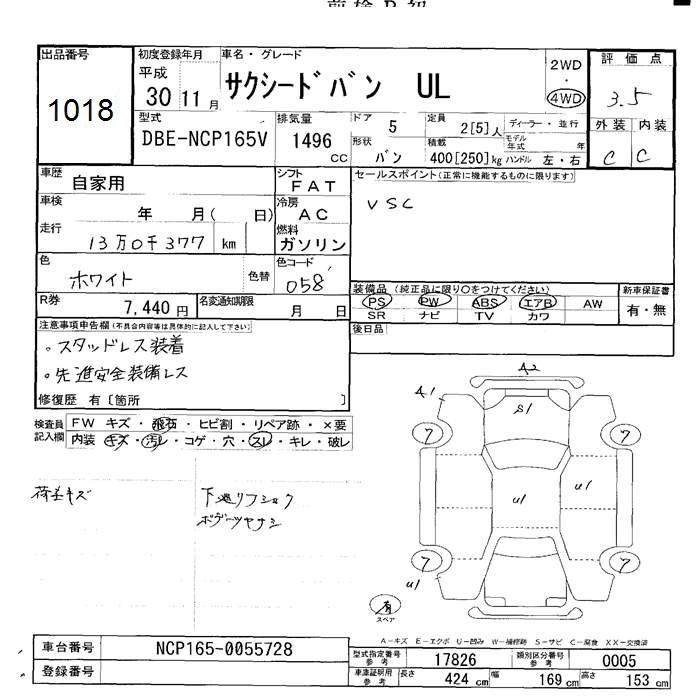 出品番号
1018
初度登録年月
平成
30 11 月
車名・グレード
サクシードバン UL
2WD
・
4WD
評価点
3.5
外装 内装
C C
型式
DBE-NCP165V
排気量
1496
CC
ドア
5
定員
2[5]人
ディーラー・並行
形状
バン
積載
400[250]kg
モデル
年式
年
ハンドル 左・右
車歴
自家用
シフト
FAT
車検
年 月( 日)
冷房
AC
走行
13万0千377 km
燃料
ガソリン
色
ホワイト
色替
色コード
058
R券
7,440 円
名変通知期限
月 日
セールスポイント(正常に機能するものに限ります)
VSC
装備品(純正品に限り○をつけてください)
PS PW ABS エアB AW
SR ナビ TV カワ
新車保証書
有・無
後日品
注意事項申告欄(不具合内容等は具体的に記入して下さい)
。スタッドレス装着
。先進安全装備レス
修復歴 有[箇所 ]
検査員
記入欄
FW キズ・飛石・ヒビ割・リペア跡・×要
内装 キズ・汚レ・コゲ・穴・スレ・キレ・破レ
荷室キズ
下廻りフショク
ボデーツヤナシ
A2
A1
S1
7
7
U1
U1
U1
7
7
U1
有
スペア
A-キズ E-エクボ U-凹み W-補修跡 S-サビ C-腐食 XX-交換済
車台番号
NCP165-0055728
登録番号
型式指定番号
参考
17826
類別区分番号
参考
0005
車庫証明用
参考
長さ
424 cm
幅
169 cm
高さ
153 cm